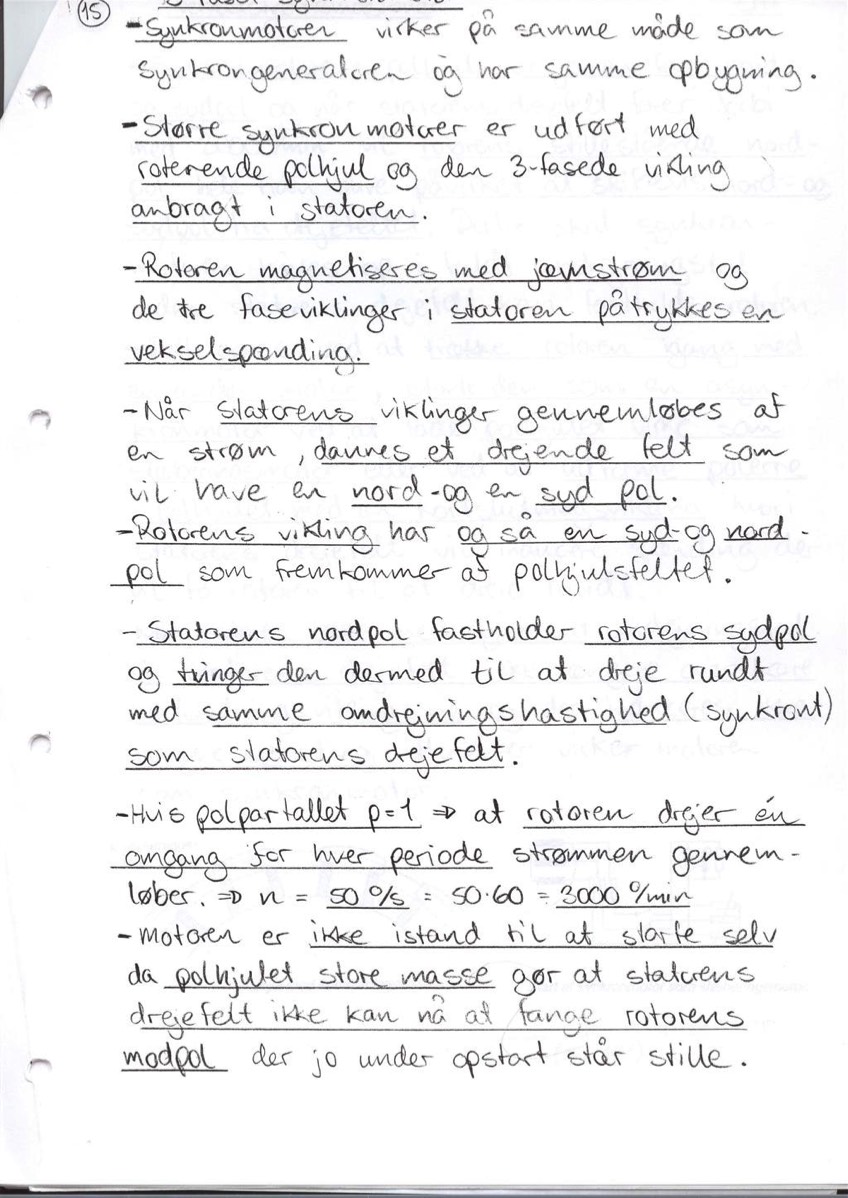 15
- Synkronmotoren virker på samme måde som
synkrongeneratoren og har samme opbygning.
- Større synkron motorer er udført med
roterende polhjul og den 3-fasede vikling
anbragt i statoren.
- Rotoren magnetiseres med jævnstrøm og
de tre faseviklinger i statoren påtrykkes en
vekselspænding.
- Når statorens viklinger gennemløbes af
en strøm, dannes et drejende felt som
vil have en nord-og en syd pol.
- Rotorens vikling har og så en syd-og nord-
pol som fremkommer af polhjulsfeltet.
- Statorens nordpol fastholder rotorens sydpol
og tvinger den dermed til at dreje rundt
med samme omdrejningshastighed (synkront)
som statorens drejefelt.
- Hvis polpartallet p=1 => at rotoren drejer én
omgang for hver periode strømmen gennem-
løber. => n = 50 o/s = 50·60 = 3000 o/min
- Motoren er ikke istand til at starte selv
da polhjulet store masse gør at statorens
drejefelt ikke kan nå at fange rotorens
modpol der jo under opstart står stille.